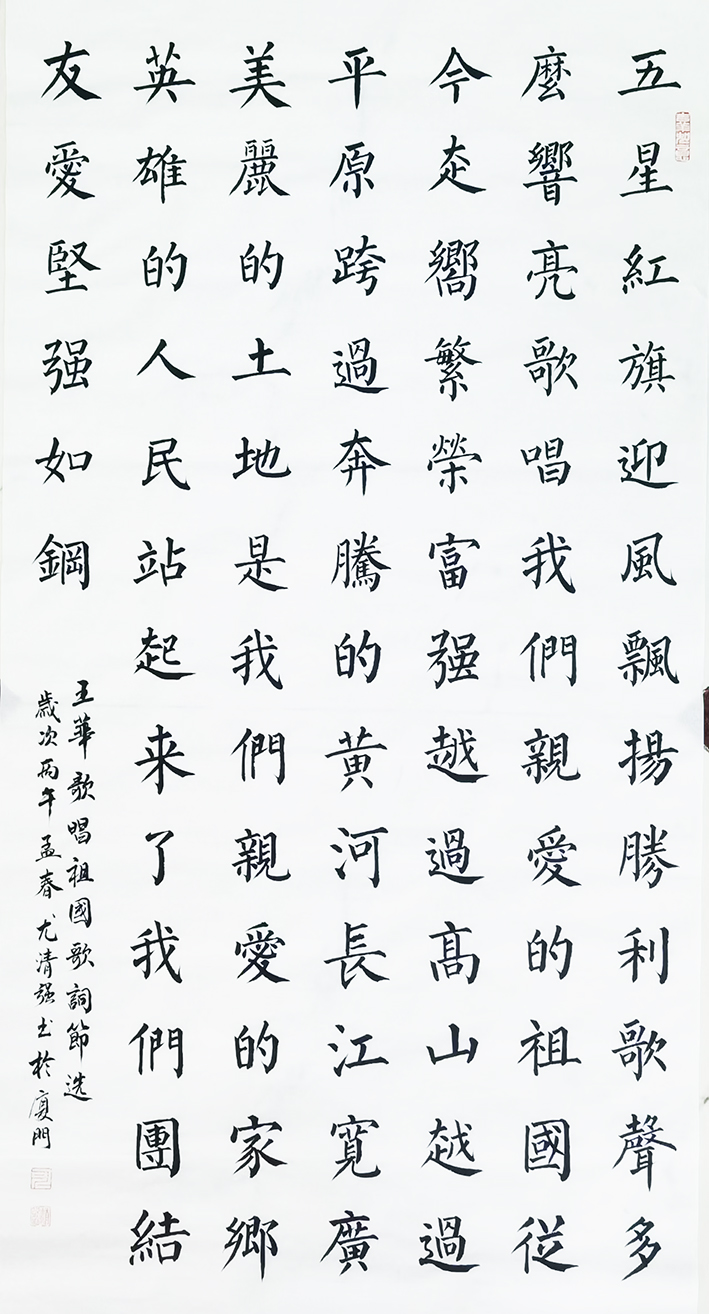 五星紅旗迎風飄揚勝利歌聲多
麼響亮歌唱我們親愛的祖國從
今走嚮繁榮富强越過高山越過
平原跨過奔騰的黄河長江寬廣
美麗的土地是我們親愛的家鄉
英雄的人民站起来了我們團結
友愛堅强如鋼
王莘歌唱祖國歌詞節选
歲次丙午孟春尤清强书於厦門